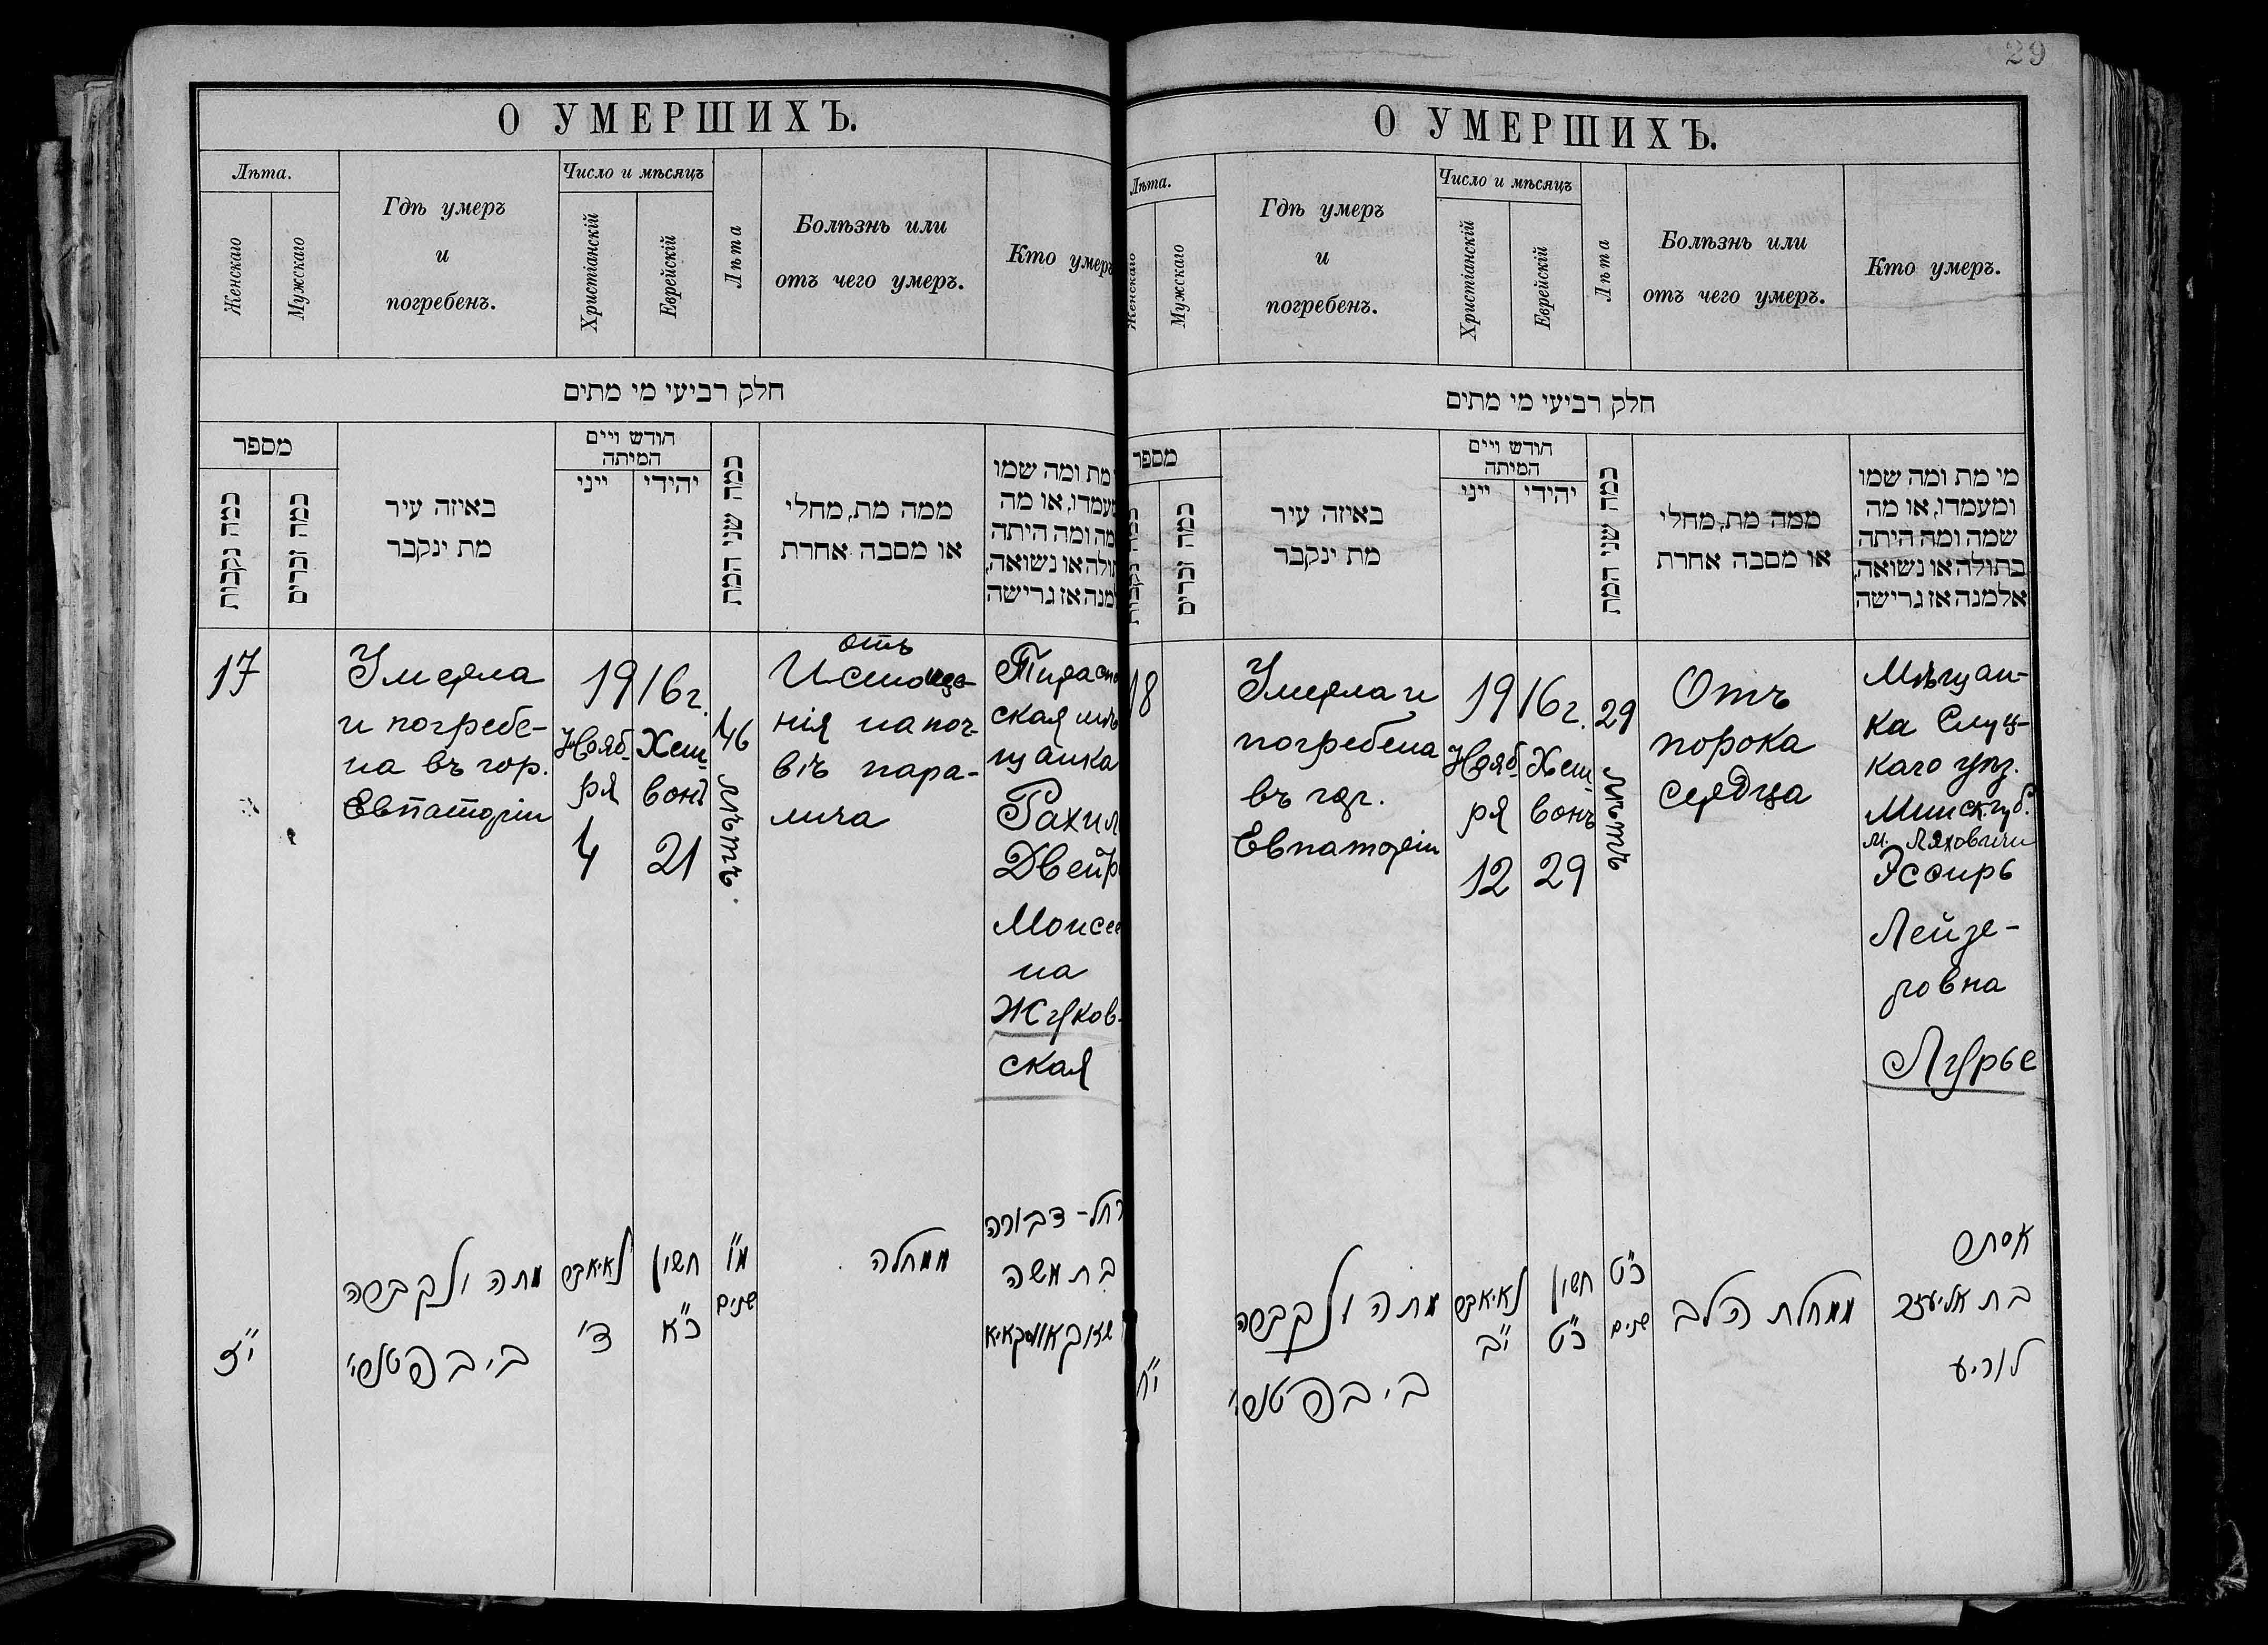 29
О УМЕРШИХЪ.
Лѣта.
Женскаго
Мужскаго
Гдѣ умеръ
и
погребенъ.
Число и мѣсяцъ
Христіанскій
Еврейскій
Лѣта
Болѣзнь или
отъ чего умеръ.
Кто умеръ
חלק רביעי מי מתים
מספר
כמה נקבות
כמה זכרים
באיזה עיר
מת ינקבר
חודש ויים
המיתה
ייני
יהודי
כמה שני המת
ממה מת, מחלי
או מסבה אחרת
מת ומה שמו
מעמדו, או מה
מה ומה היתה
תולה או נשואה,
מנה אז גרישה
17
Умерла
и погребе-
на въ гор.
Евпаторіи
1916 г.
Нояб-
ря
4
Хеш-
вонъ
21
46
лѣтъ.
отъ
Истоще-
нія на поч-
вѣ пара-
лича
Тирасполь
ская мѣ
щанка
Рахил
Двейр
Моисее
на
Жуков-
ская
י"ז
מתה ונקברה
ב
ד'
חשון
כ"א
מ"ו
שנים
ממחלה
רחל-דבורה
בת משה
О УМЕРШИХЪ.
Лѣта.
Женскаго
Мужскаго
Гдѣ умеръ
и
погребенъ.
Число и мѣсяцъ
Христіанскій
Еврейскій
Лѣта
Болѣзнь или
отъ чего умеръ.
Кто умеръ.
חלק רביעי מי מתים
מספר
כמה נקבות
כמה זכרים
באיזה עיר
מת ינקבר
חודש ויים
המיתה
ייני
יהודי
כמה שני המת
ממה מת, מחלי
או מסבה אחרת
מי מת ומה שמו
ומעמדו, או מה
שמה ומה היתה
בתולה או נשואה,
אלמנה אז גרישה
18
Умерла и
погребена
въ гор.
Евпаторіи
1916 г.
Нояб-
ря
12
Хеш-
вонъ
29
29
лѣтъ
Отъ
порока
сердца
Мѣщан-
ка Слуц-
каго уѣз.
Минск. губ.
м. Ляховичи
Эсѳирь
Лейзе-
ровна
Лурье
י"ח
מתה ונקברה
י"ב
חשון
כ"ט
כ"ט
שנים
ממחלת הלב
אסתר
בת אליעזר
לוריע